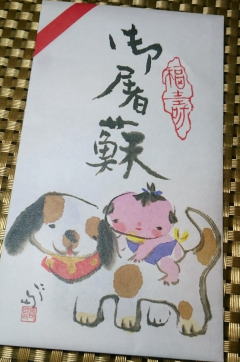 御屠蘇
福壽